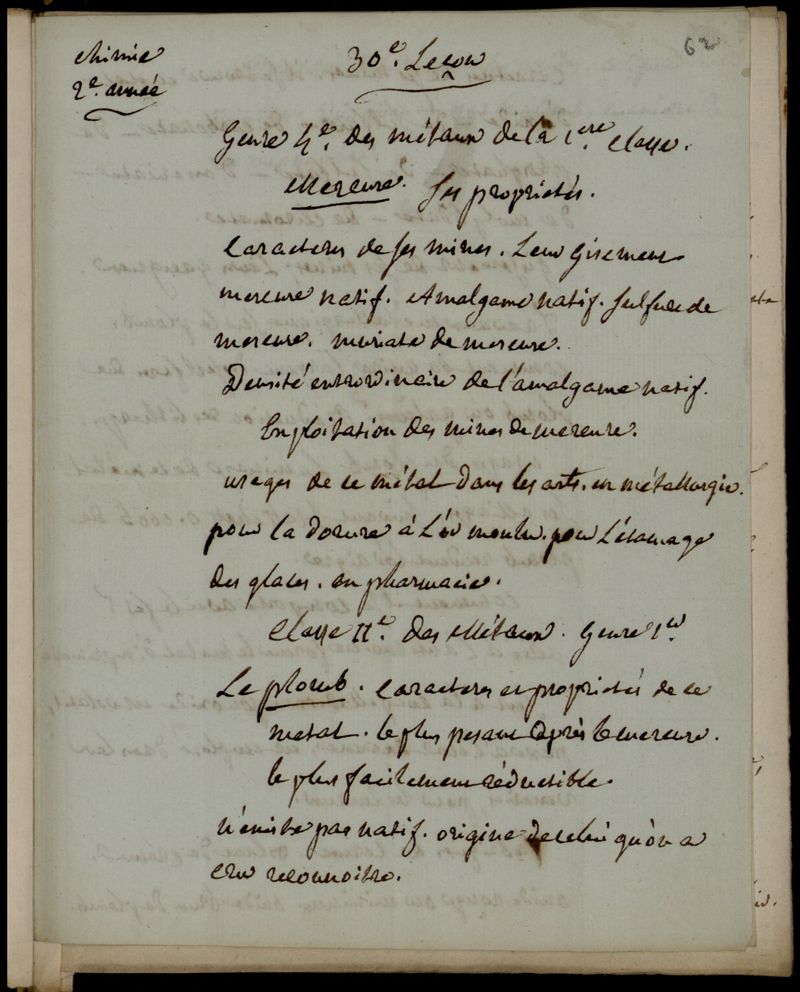 chimie
2e. année
30e. Leçon
62
Genre 4e. des métaux de la 1ere classe.
Mercure. ses propriétés.
Caracteres de ses mines. Leur gisement
mercure natif. Amalgame natif. Sulfure de
mercure. muriate de mercure.
Densité extrordinaire de l'amalgame natif.
Exploitation des mines de mercure.
usages de ce métal dans les arts. en métallurgie.
pour la dorure à l'or moulu. pour l'étamage
des glaces. en pharmacie.
Classe IIe. des Métaux. Genre 1er.
Le plomb. caracteres et propriétés de ce
métal. le plus pesant après le mercure.
le plus facilement réductible.
n'existe pas natif. origine de celui qu'on a
cru reconnoitre.